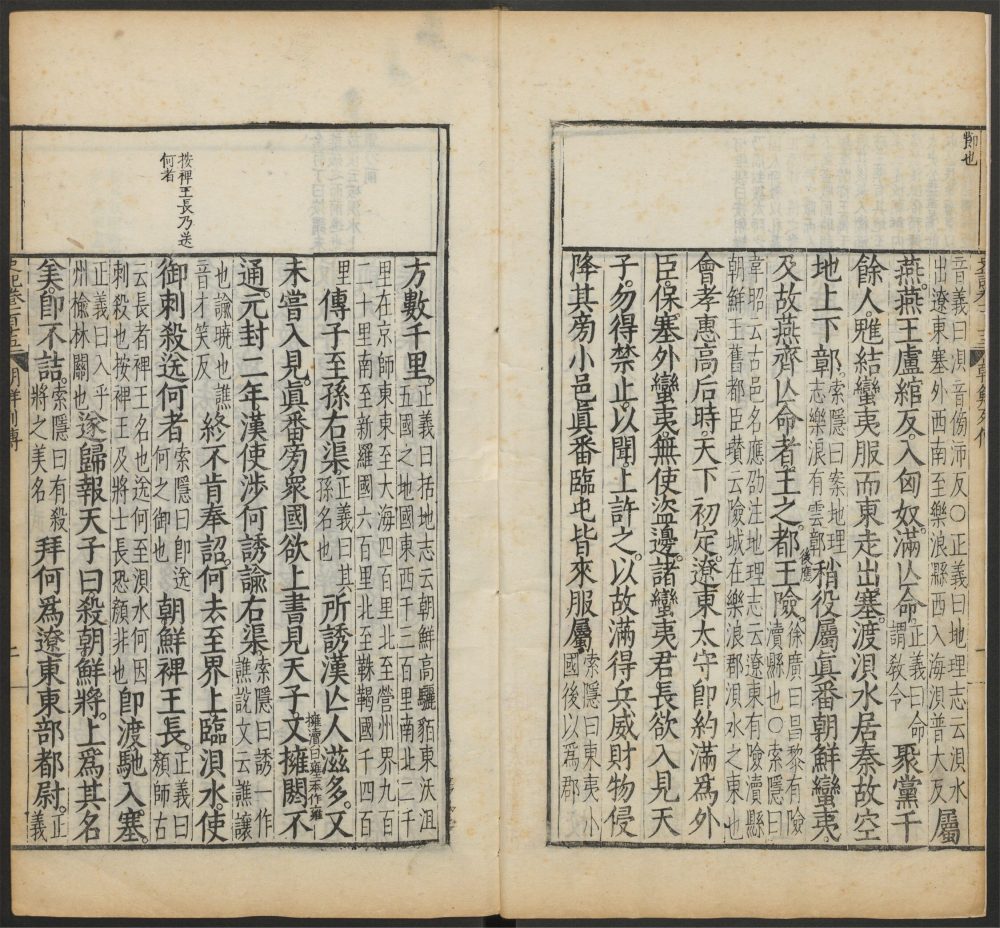 音義曰浿音傍沛反○正義曰地理志云浿水
出遼東塞外西南至樂浪縣西入海浿普大反
屬
燕。燕王盧綰反。入匈奴。滿亾命。正義曰命
謂敎令
聚黨千
餘人。魋結蠻夷服而東走出塞。渡浿水居秦故空
地上下鄣。索隱曰案地理
志樂浪有雲鄣
後應
稍役屬眞番朝鮮蠻夷。
及故燕齊亾命者。王之。都王險。徐廣曰昌黎有險
瀆縣也○索隱曰
韋昭云古邑名應劭注地理志云遼東有險瀆縣
朝鮮王舊都臣瓚云險城在樂浪郡浿水之東也
會孝惠高后時。天下初定。遼東太守卽約滿爲外
臣。保塞外蠻夷。無使盜邊。諸蠻夷君長欲入見天
子。勿得禁止。以聞。上許之。以故滿得兵威財物侵
降其旁小邑眞番臨屯皆來服屬。索隱曰東夷小
國後以爲郡
方數千里。正義曰括地志云朝鮮高驪貊東沃沮
五國之地國東西千三百里南北二千
里在京師東東至大海四百里北至營州界九百
二十里南至新羅國六百里北至靺鞨國千四百
里
傳子至孫右渠。正義曰其
孫名也
所誘漢亾人滋多。又
未嘗入見。眞番旁衆國欲上書見天子。又擁閼不
擁瀆曰雍本作雍
通。元封二年。漢使涉何誘諭右渠。索隱曰誘一作
譙說文云譙讓
也諭曉也譙
音才笑反
終不肯奉詔。何去至界上臨浿水。使
御刺殺送何者。索隱曰卽送
何之御也
朝鮮裨王長。正義曰
顏師古
云長者裨王名也送何至浿水何因
刺殺也按裨王及將士長恐顏非也
卽渡馳入塞。
正義曰入平
州楡林關也
遂歸報天子曰殺朝鮮將。上爲其名
美。卽不詰。索隱曰有殺
將之美名
拜何爲遼東東部都尉。正
義
按裨王長乃送
何者